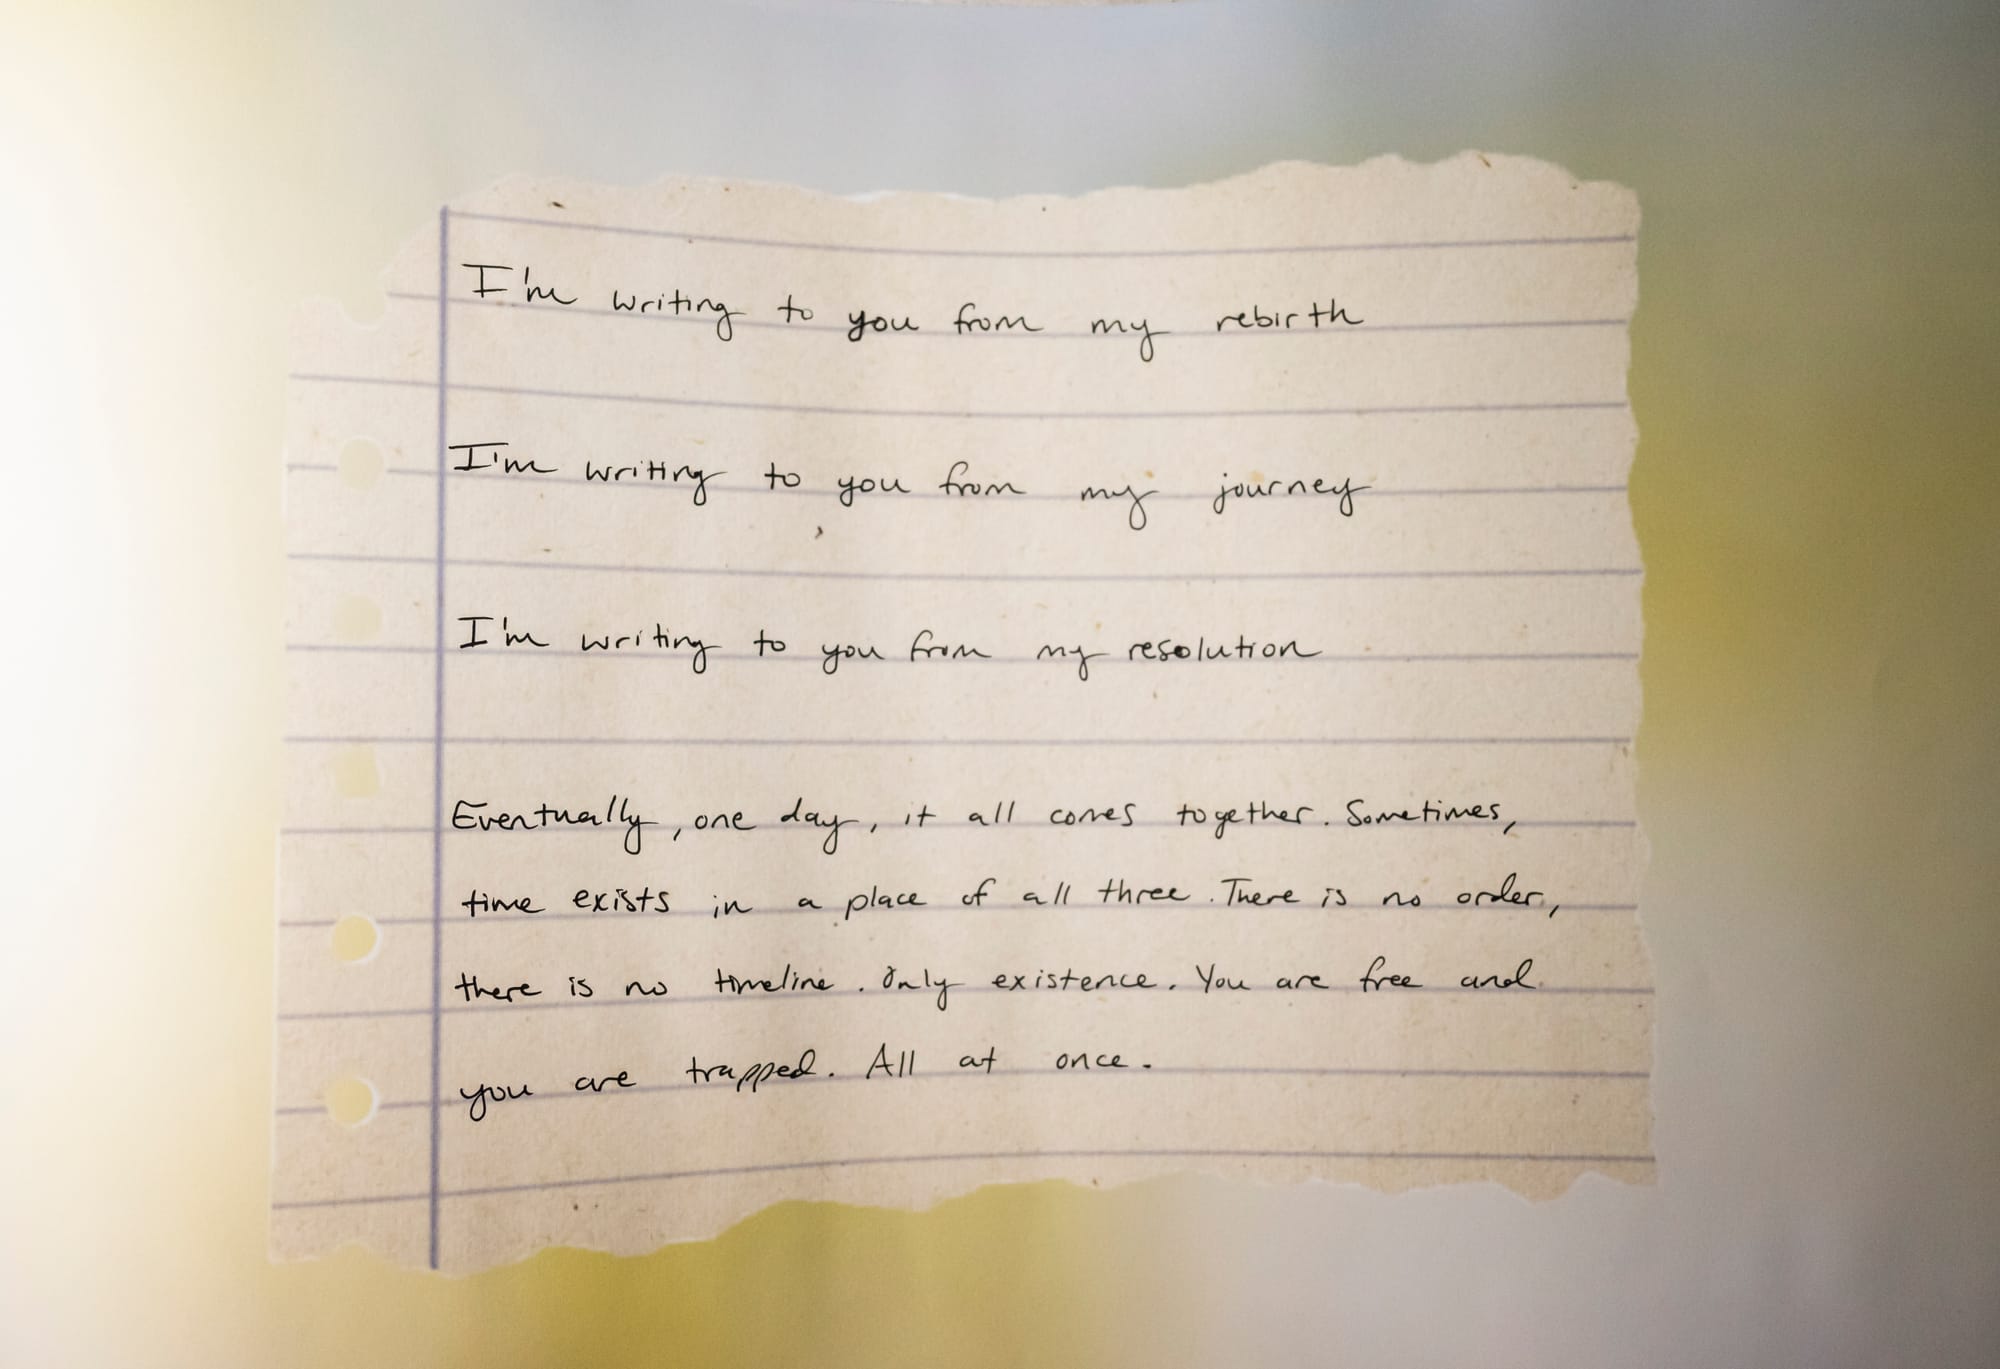 I'm writing to you from my rebirth
I'm writing to you from my journey
I'm writing to you from my resolution
Eventually, one day, it all comes together. Sometimes,
time exists in a place of all three. There is no order,
there is no timeline. Only existence. You are free and
you are trapped. All at once.